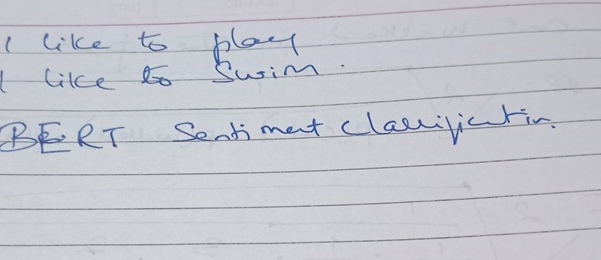 I like to play
I like to Swim.
BERT Sentiment Classification.